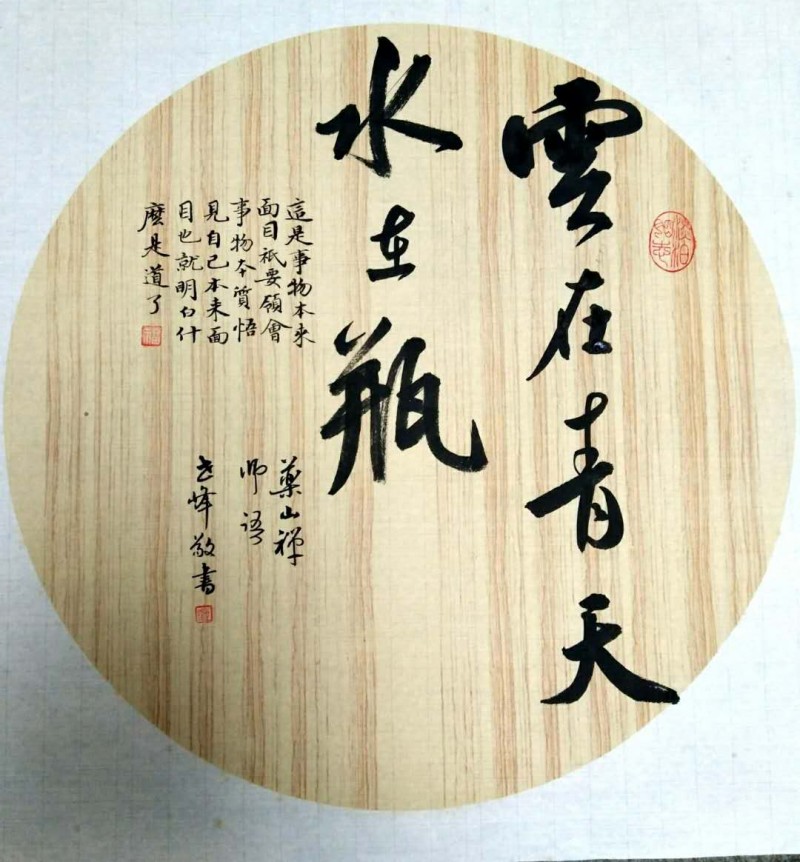 雲在青天
水在瓶
這是事物本來
面目祇要領會
事物本質悟
見自己本来面
目也就明白什
麼是道了
藥山禅
师语
峰敬書